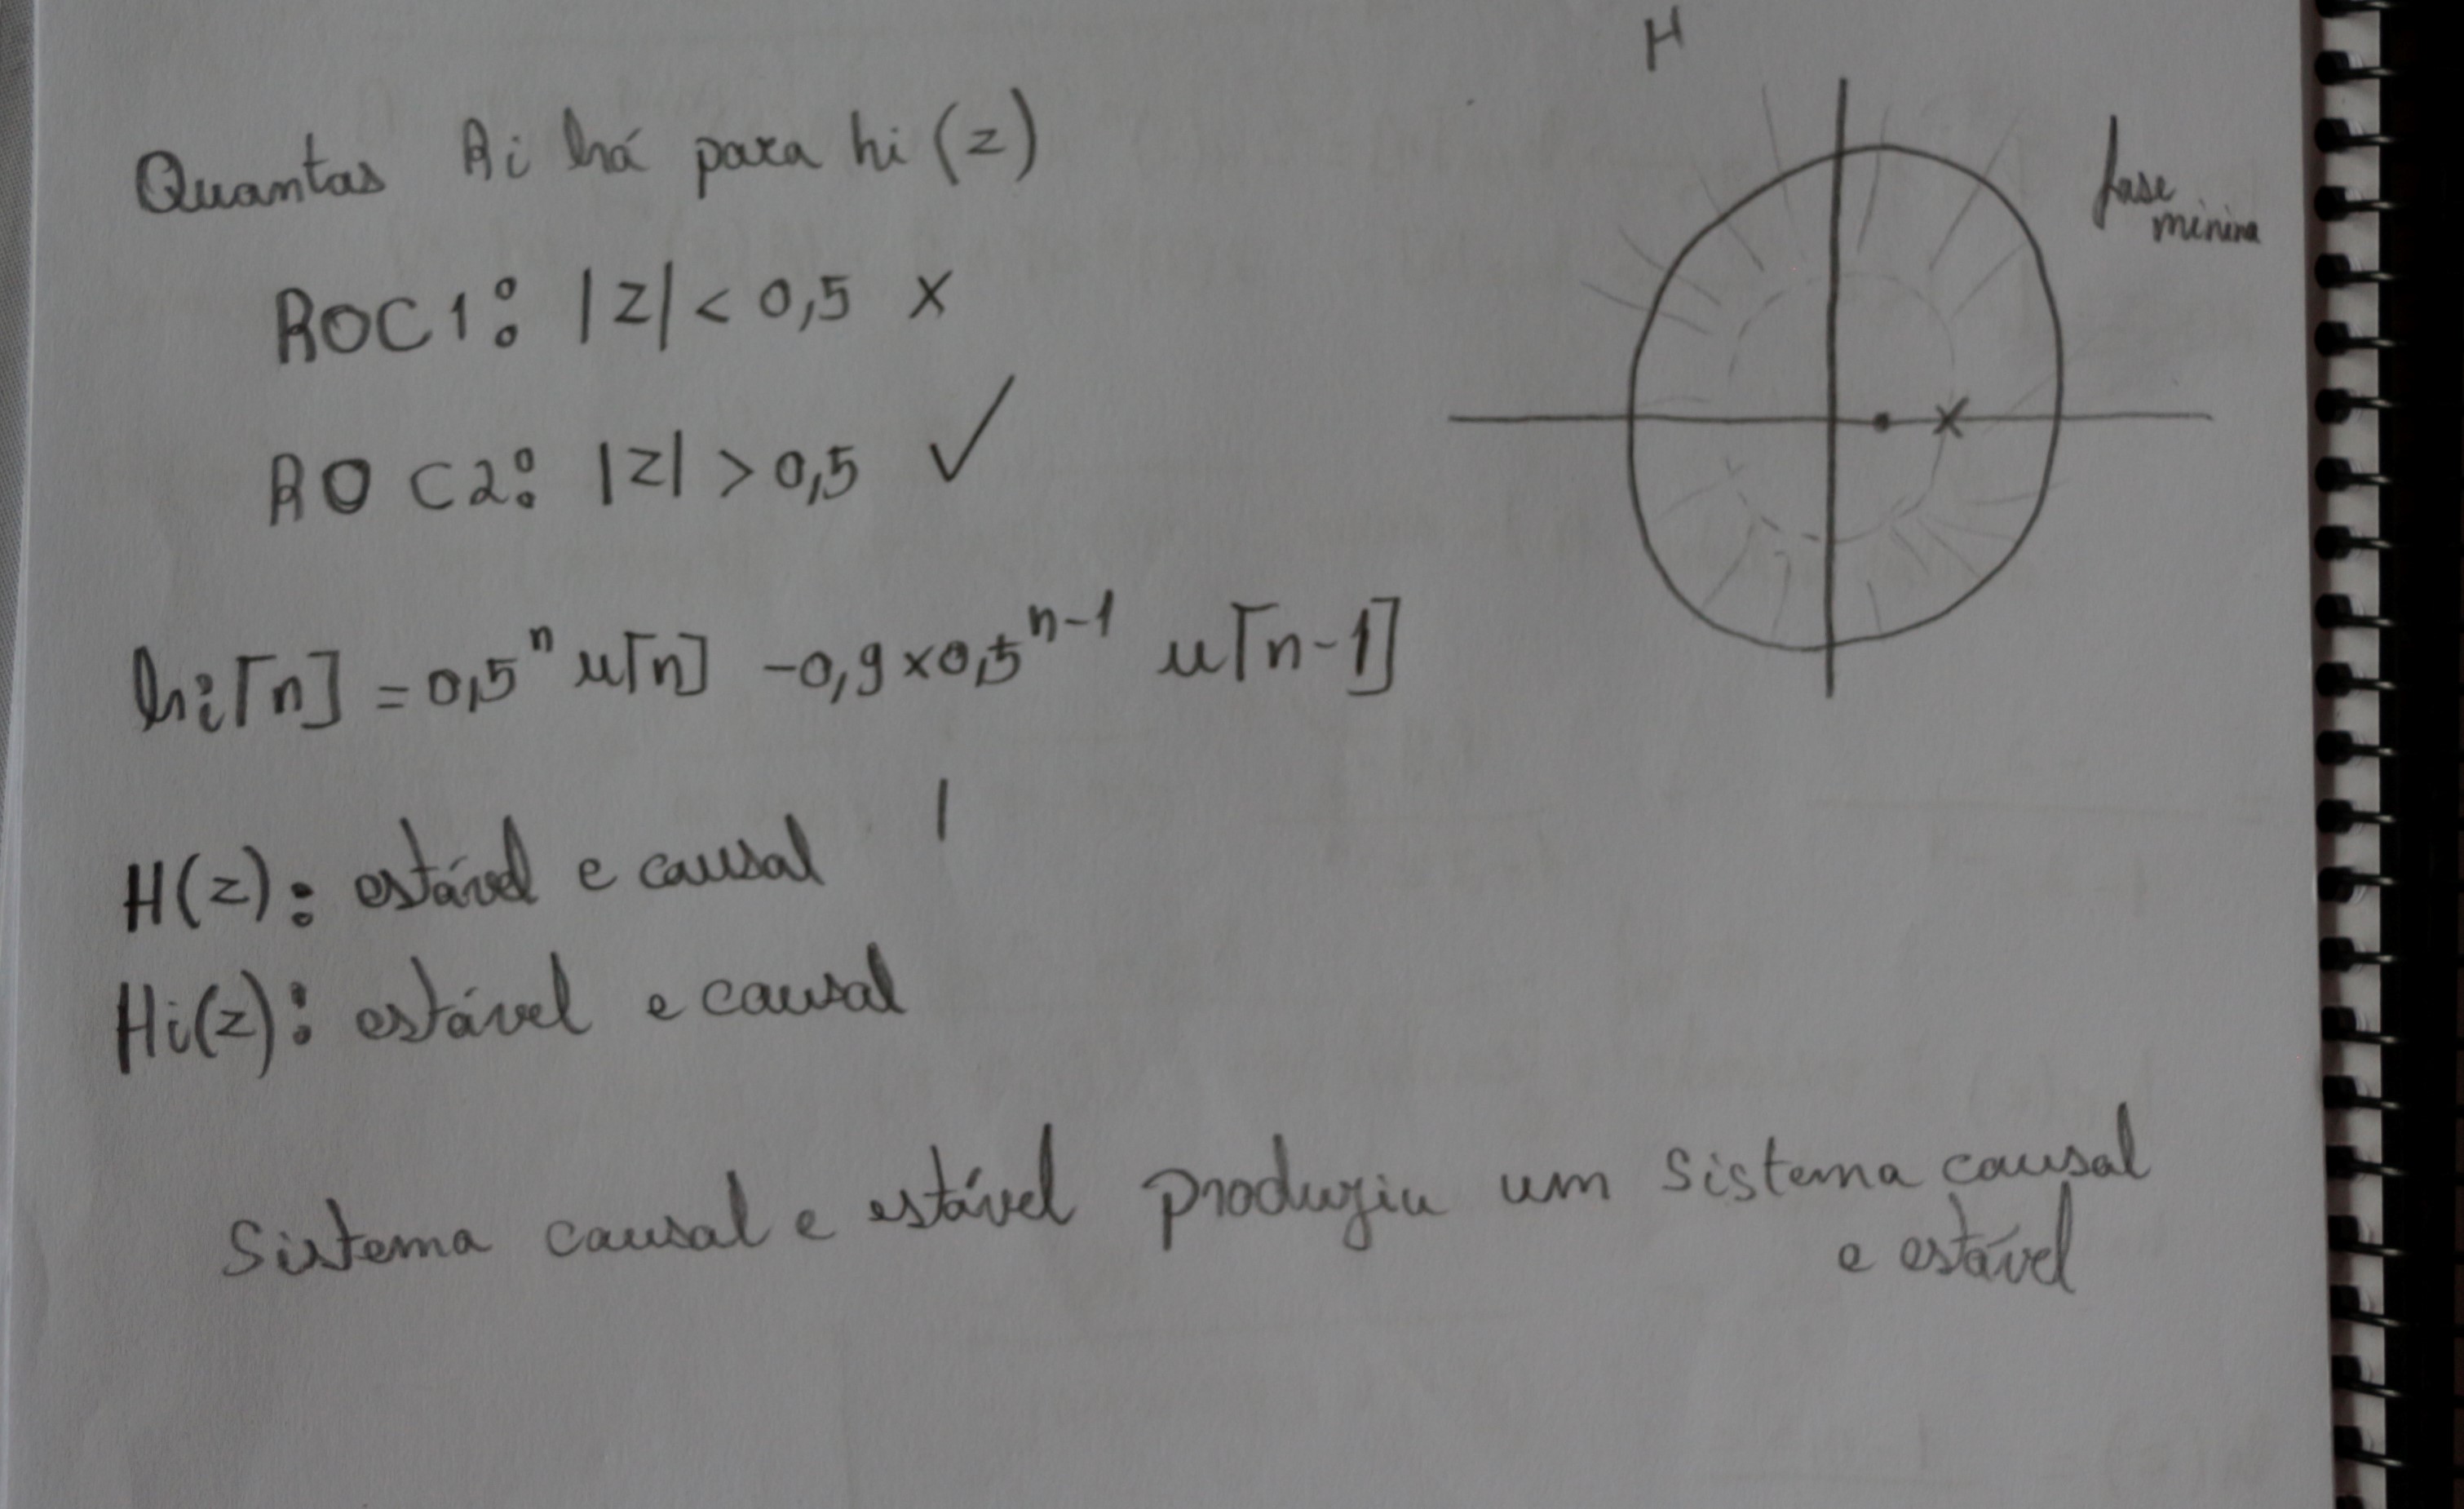 H
Quantas Ri há para hi (z)
fase
minina
ROC1: |z| < 0,5 x
ROC2: |z| > 0,5 ✓
hi[n] = 0,5^n u[n] -0,9 x 0,5^n-1 u[n-1]
H(z): estável e causal
Hi(z): estável e causal
Sistema causal e estável produziu um sistema causal
e estável